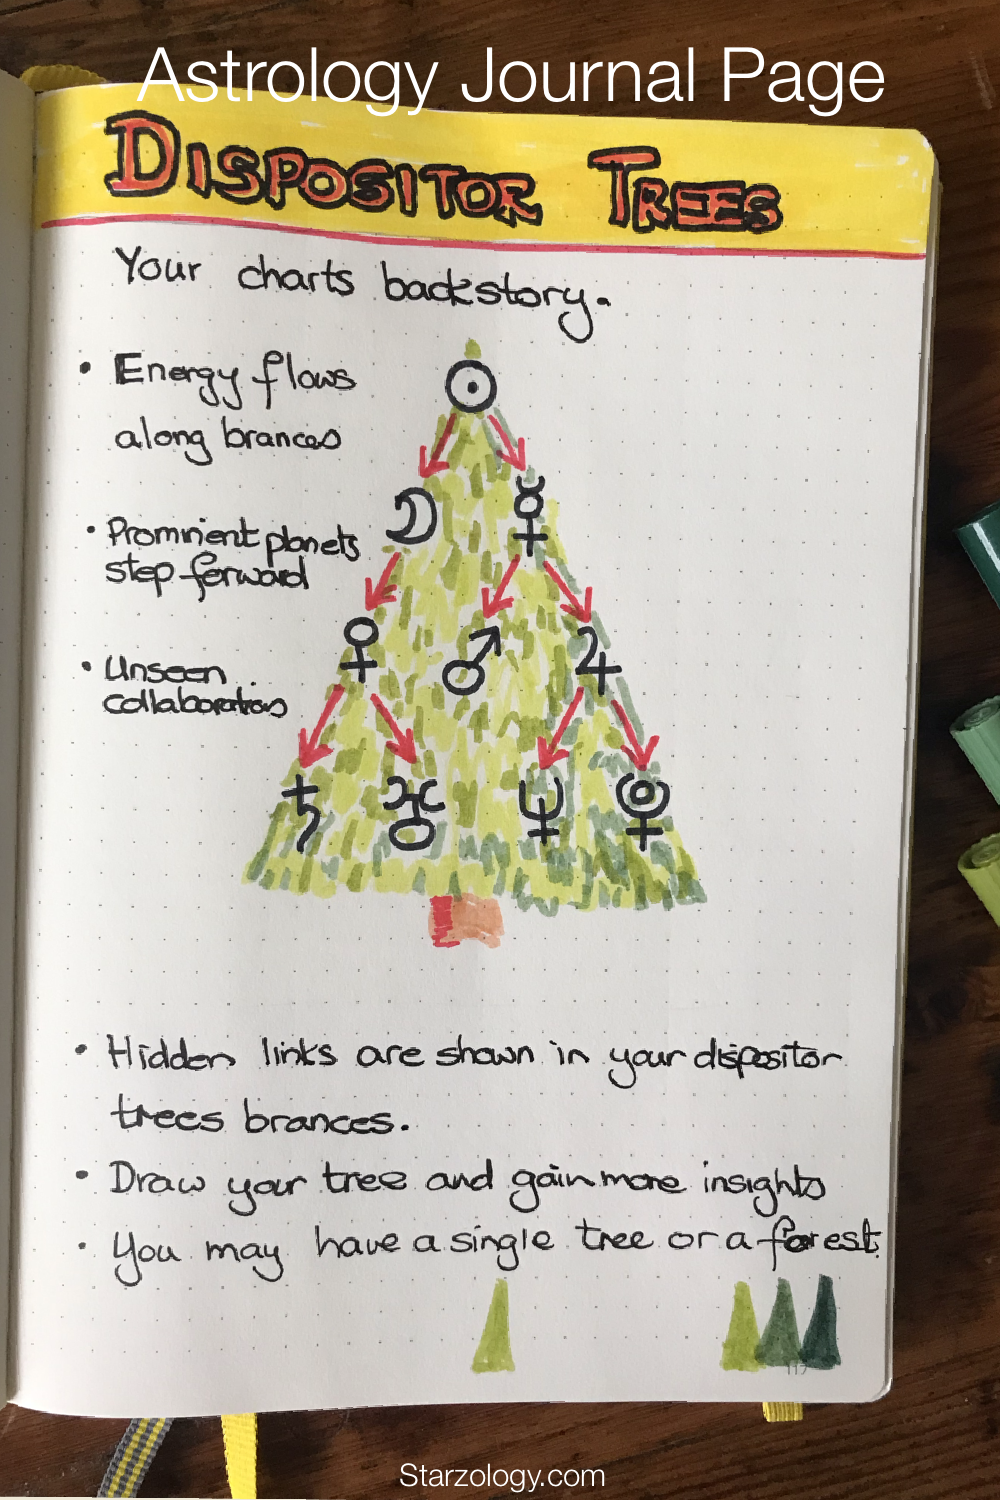 Astrology Journal Page
DISPOSITOR TREES
Your charts backstory.
• Energy flows
along brances
• Prominent planets
step forward
• Unseen
collaborations
• Hidden links are shown in your dispositor
trees brances.
• Draw your tree and gain more insights
• You may have a single tree or a forest.
117
Starzology.com